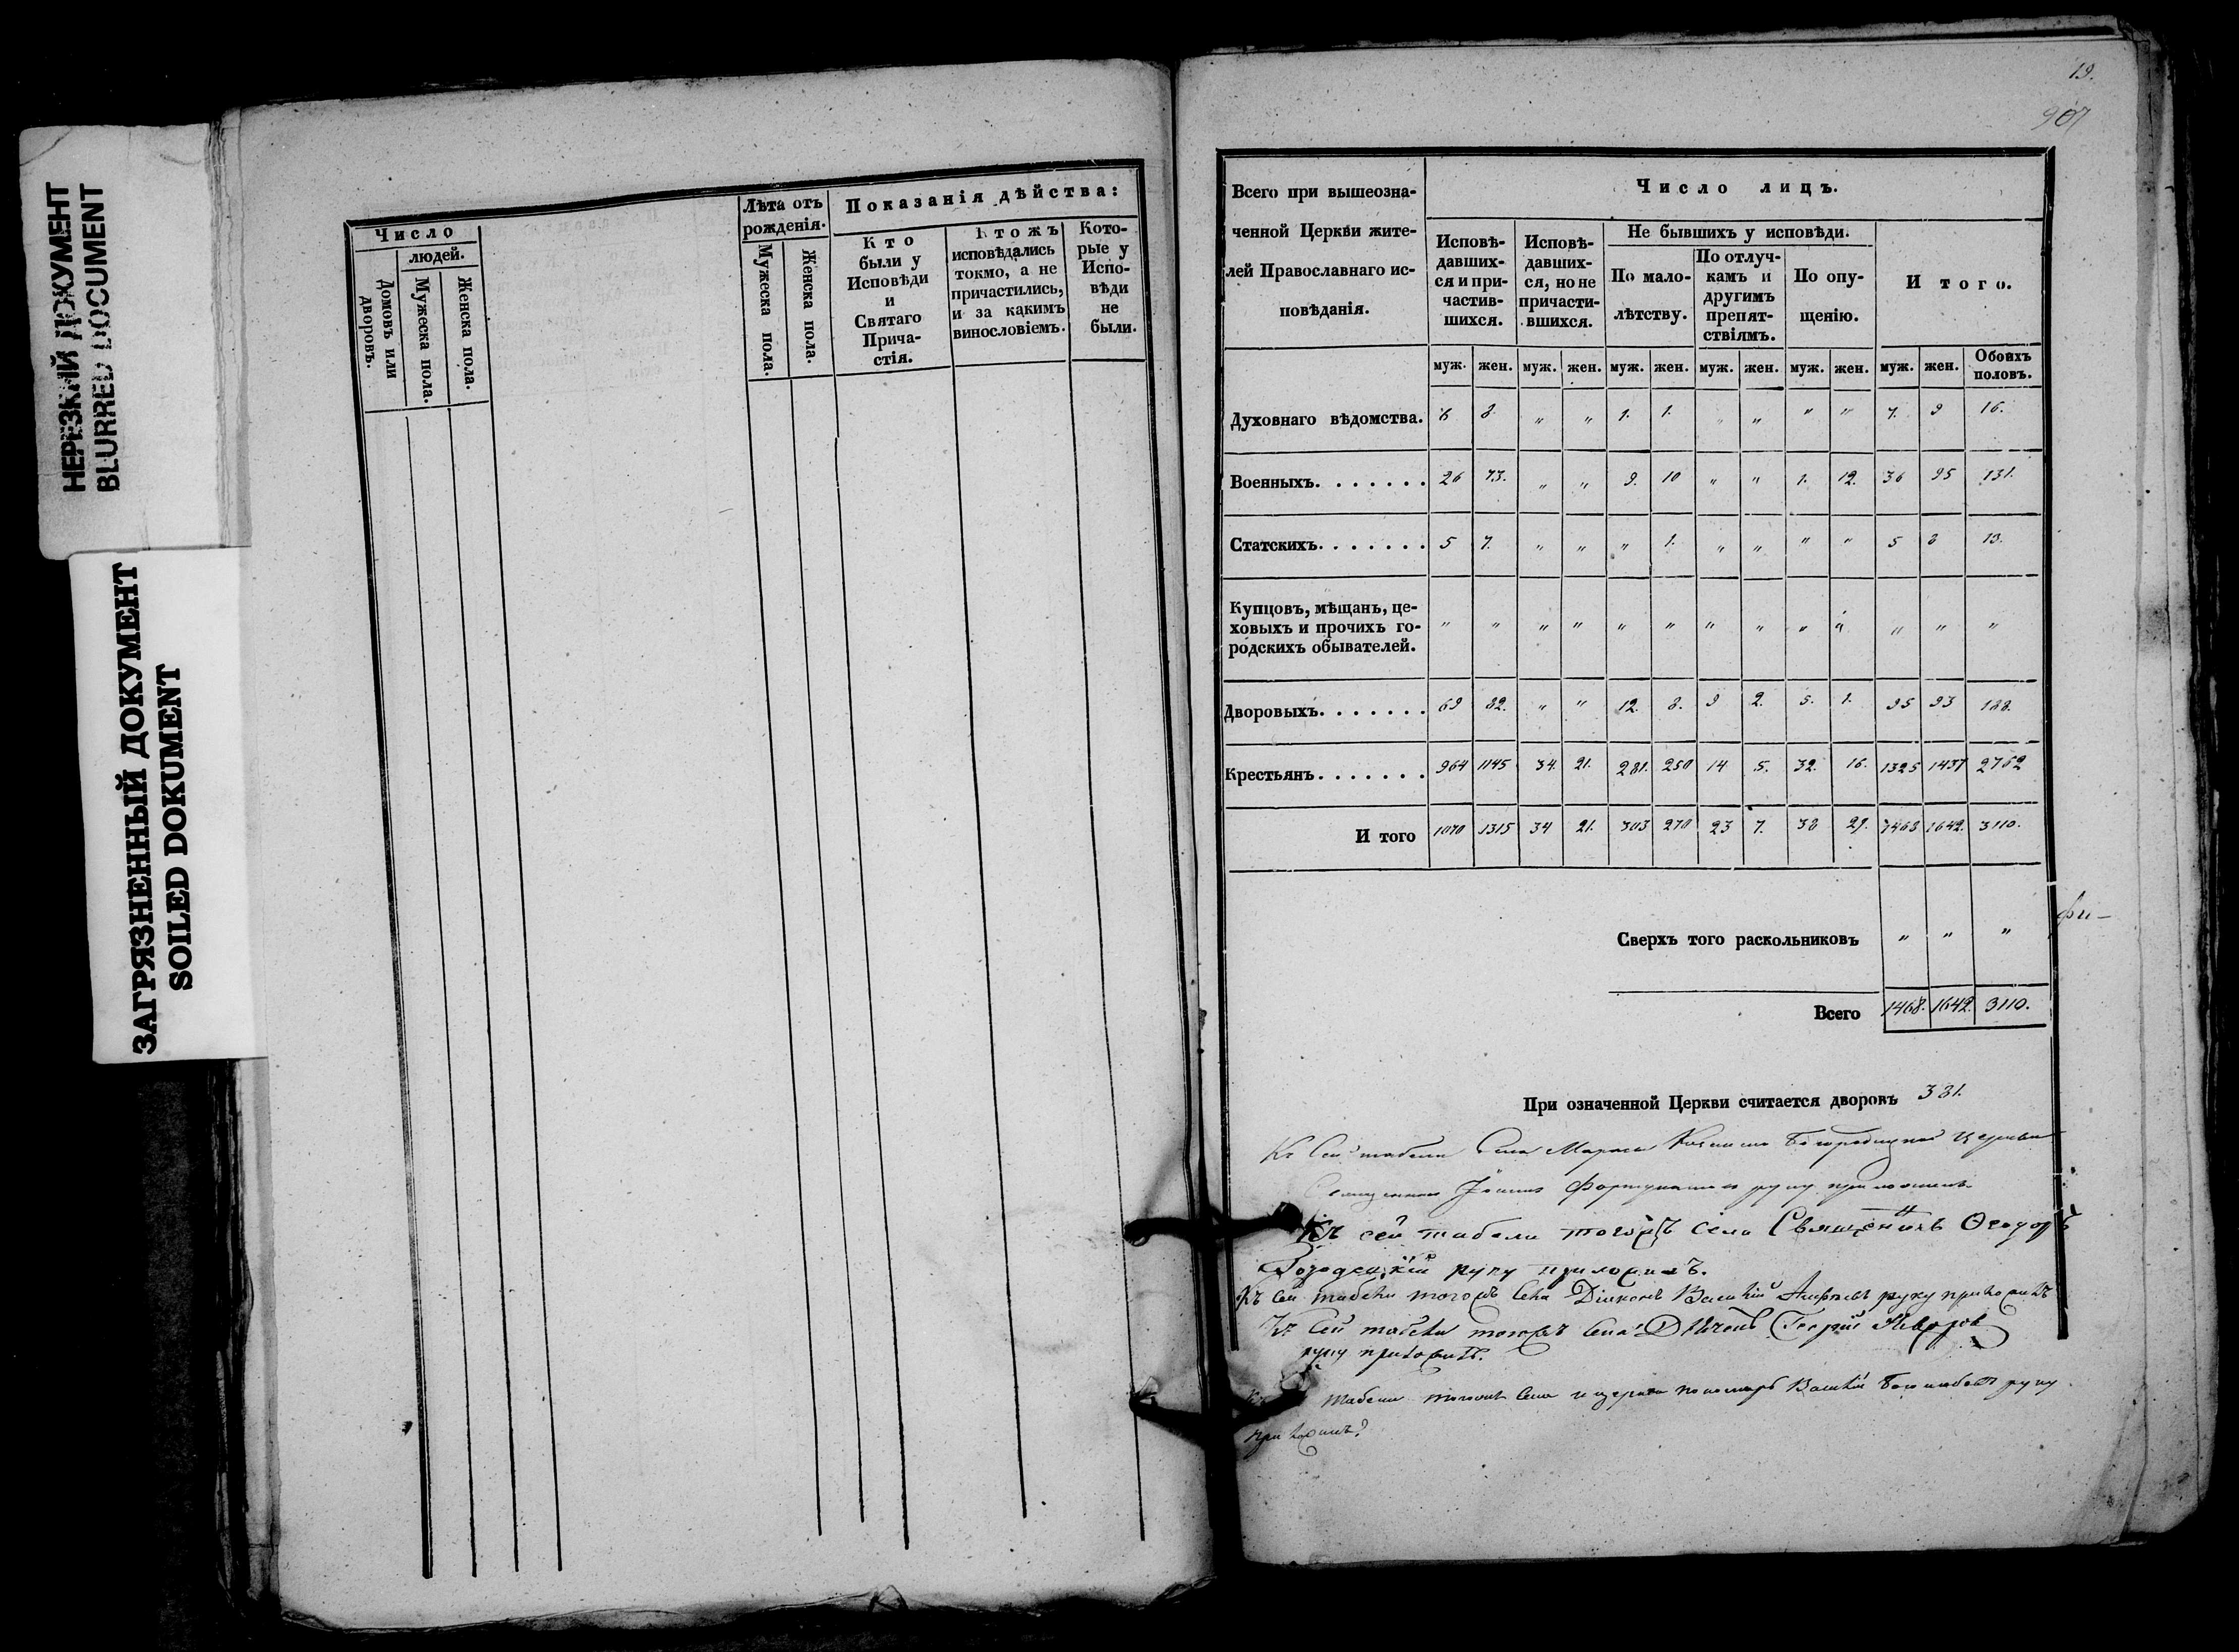 НЕРЕЗКИЙ ДОКУМЕНТ
BLURRED DOCUMENT
ЗАГРЯЗНЕННЫЙ ДОКУМЕНТ
SOILED DOKUMENT
Число
людей.
Домовъ или дворовъ.
Мужеска пола.
Женска пола.
Лѣта отъ рожденія.
Мужеска пола.
Женска пола.
Показанія дѣйства:
Кто
были у
Исповѣди
и
Святаго
Прича-
стія.
Ктожъ
исповѣдались
токмо, а не
причастились,
и за какимъ
винословіемъ.
Кото-
рые у
Испо-
вѣди
не
были.
19.
907
Всего при вышеозна-
ченной Церкви жите-
лей Православнаго ис-
повѣданія.
Число лицъ.
Исповѣ-
давших-
ся и при-
частив-
шихся.
Исповѣ-
давших-
ся, но не
причасти-
вшихся.
Не бывшихъ у исповѣди.
По мало-
лѣтству.
По отлуч-
камъ и
другимъ
препят-
ствіямъ.
По опу-
щенію.
И того.
муж. жен. муж. жен. муж. жен. муж. жен. муж. жен. муж. жен. Обоихъ половъ.
Духовнаго вѣдомства. 6 8. " " 1. 1. " " " " 7. 9 16.
Военныхъ. . . . . . . 26 73. " " 9. 10 " " 1. 12. 36 95 131.
Статскихъ. . . . . . . 5 7. " " " 1. " " " " 5 8 13.
Купцовъ, мѣщанъ, це-
ховыхъ и прочихъ го-
родскихъ обывателей. " " " " " " " " " " " " "
Дворовыхъ. . . . . . . 69 82. " " 12. 8. 9 2. 5. 1. 95 93 188.
Крестьянъ. . . . . . . 964 1145 34. 21. 281. 250 14 5. 32. 16. 1325 1437 2762
И того 1070 1315 34 21. 303 270 23 7. 38 29. 1468 1642. 3110.
Сверхъ того раскольниковъ " " "
Всего 1468. 1642. 3110.
При означенной Церкви считается дворовъ 381.
Къ сей табели села Богородицкой церкви
Священникъ Іоаннъ руку приложилъ.
Къ сей табели тогожъ села Священникъ Ѳеодоръ
руку приложилъ.
Къ сей табели тогожъ села Діаконъ Василій руку приложилъ
Къ сей табели тогожъ села Дьячекъ Георгій
руку приложилъ.
табели тогожъ села и церкви пономарь Василій руку
приложилъ.